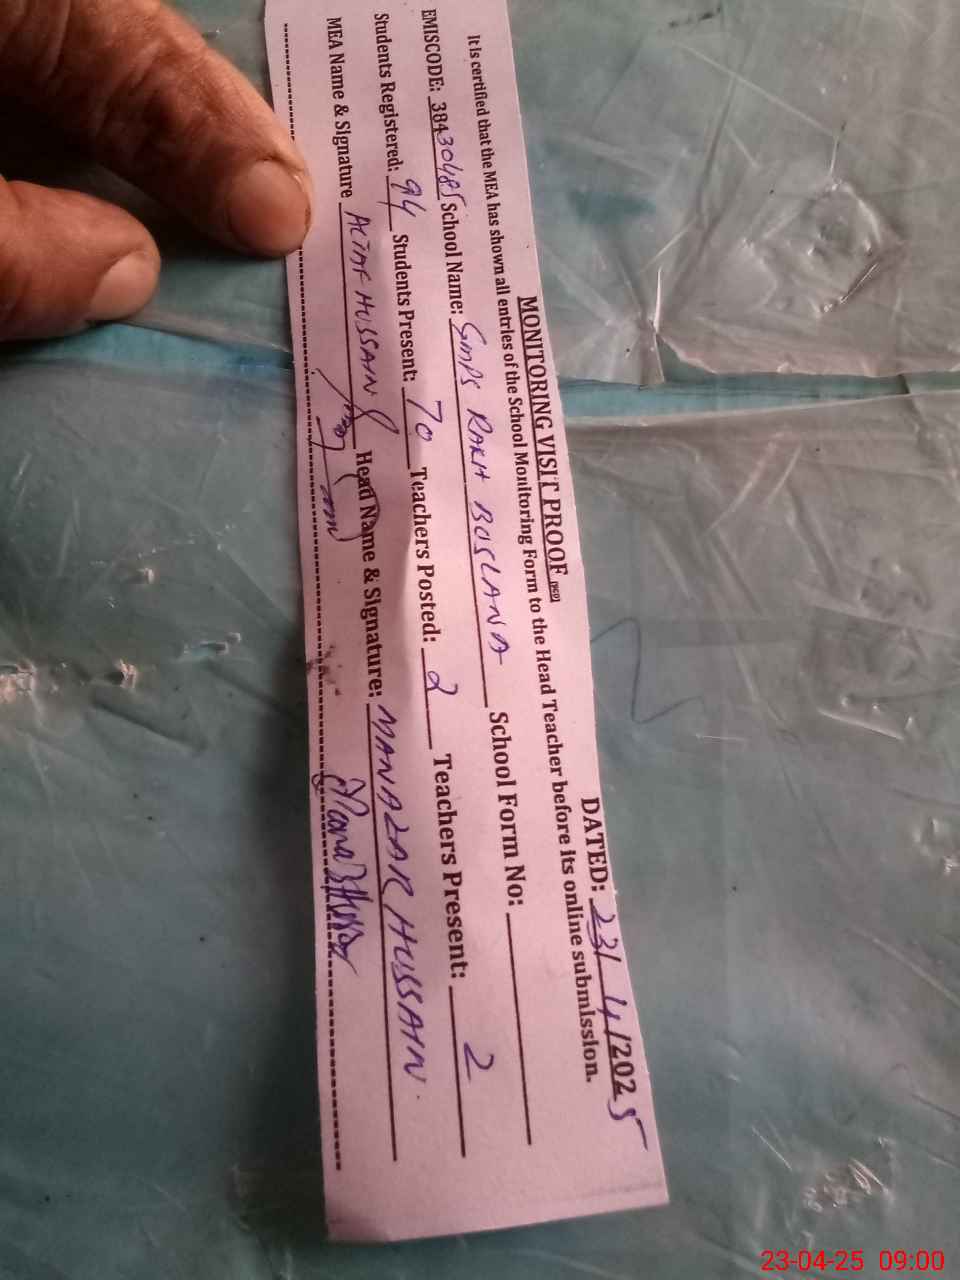 MONITORING VISIT PROOF (PSD) DATED: 23/4/2025
It is certified that the MEA has shown all entries of the School Monitoring Form to the Head Teacher before its online submission.
EMISCODE: 38430485 School Name: GMPS RAKH BOSLANA School Form No:
Students Registered: 94 Students Present: 70 Teachers Posted: 2 Teachers Present: 2
MEA Name & Signature ALTAF HUSSAIN Head Name & Signature: MANAZAR HUSSAIN
23-04-25 09:00